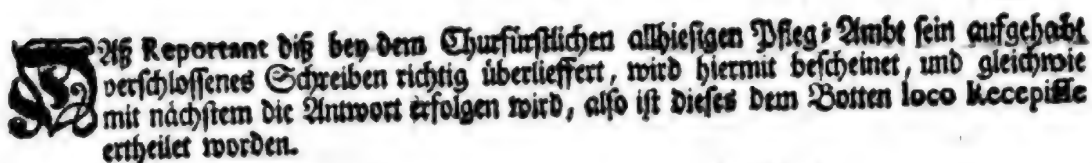 DAß Reportant diß bey dem Churfürstlichen allhiesigen Pfleg-Ambt sein aufgehabt
verschlossenes Schreiben richtig überlieffert, wird hiermit bescheinet, und gleichwie
mit nächstem die Antwort erfolgen wird, also ist dieses dem Botten loco Recepisse
ertheilet worden.